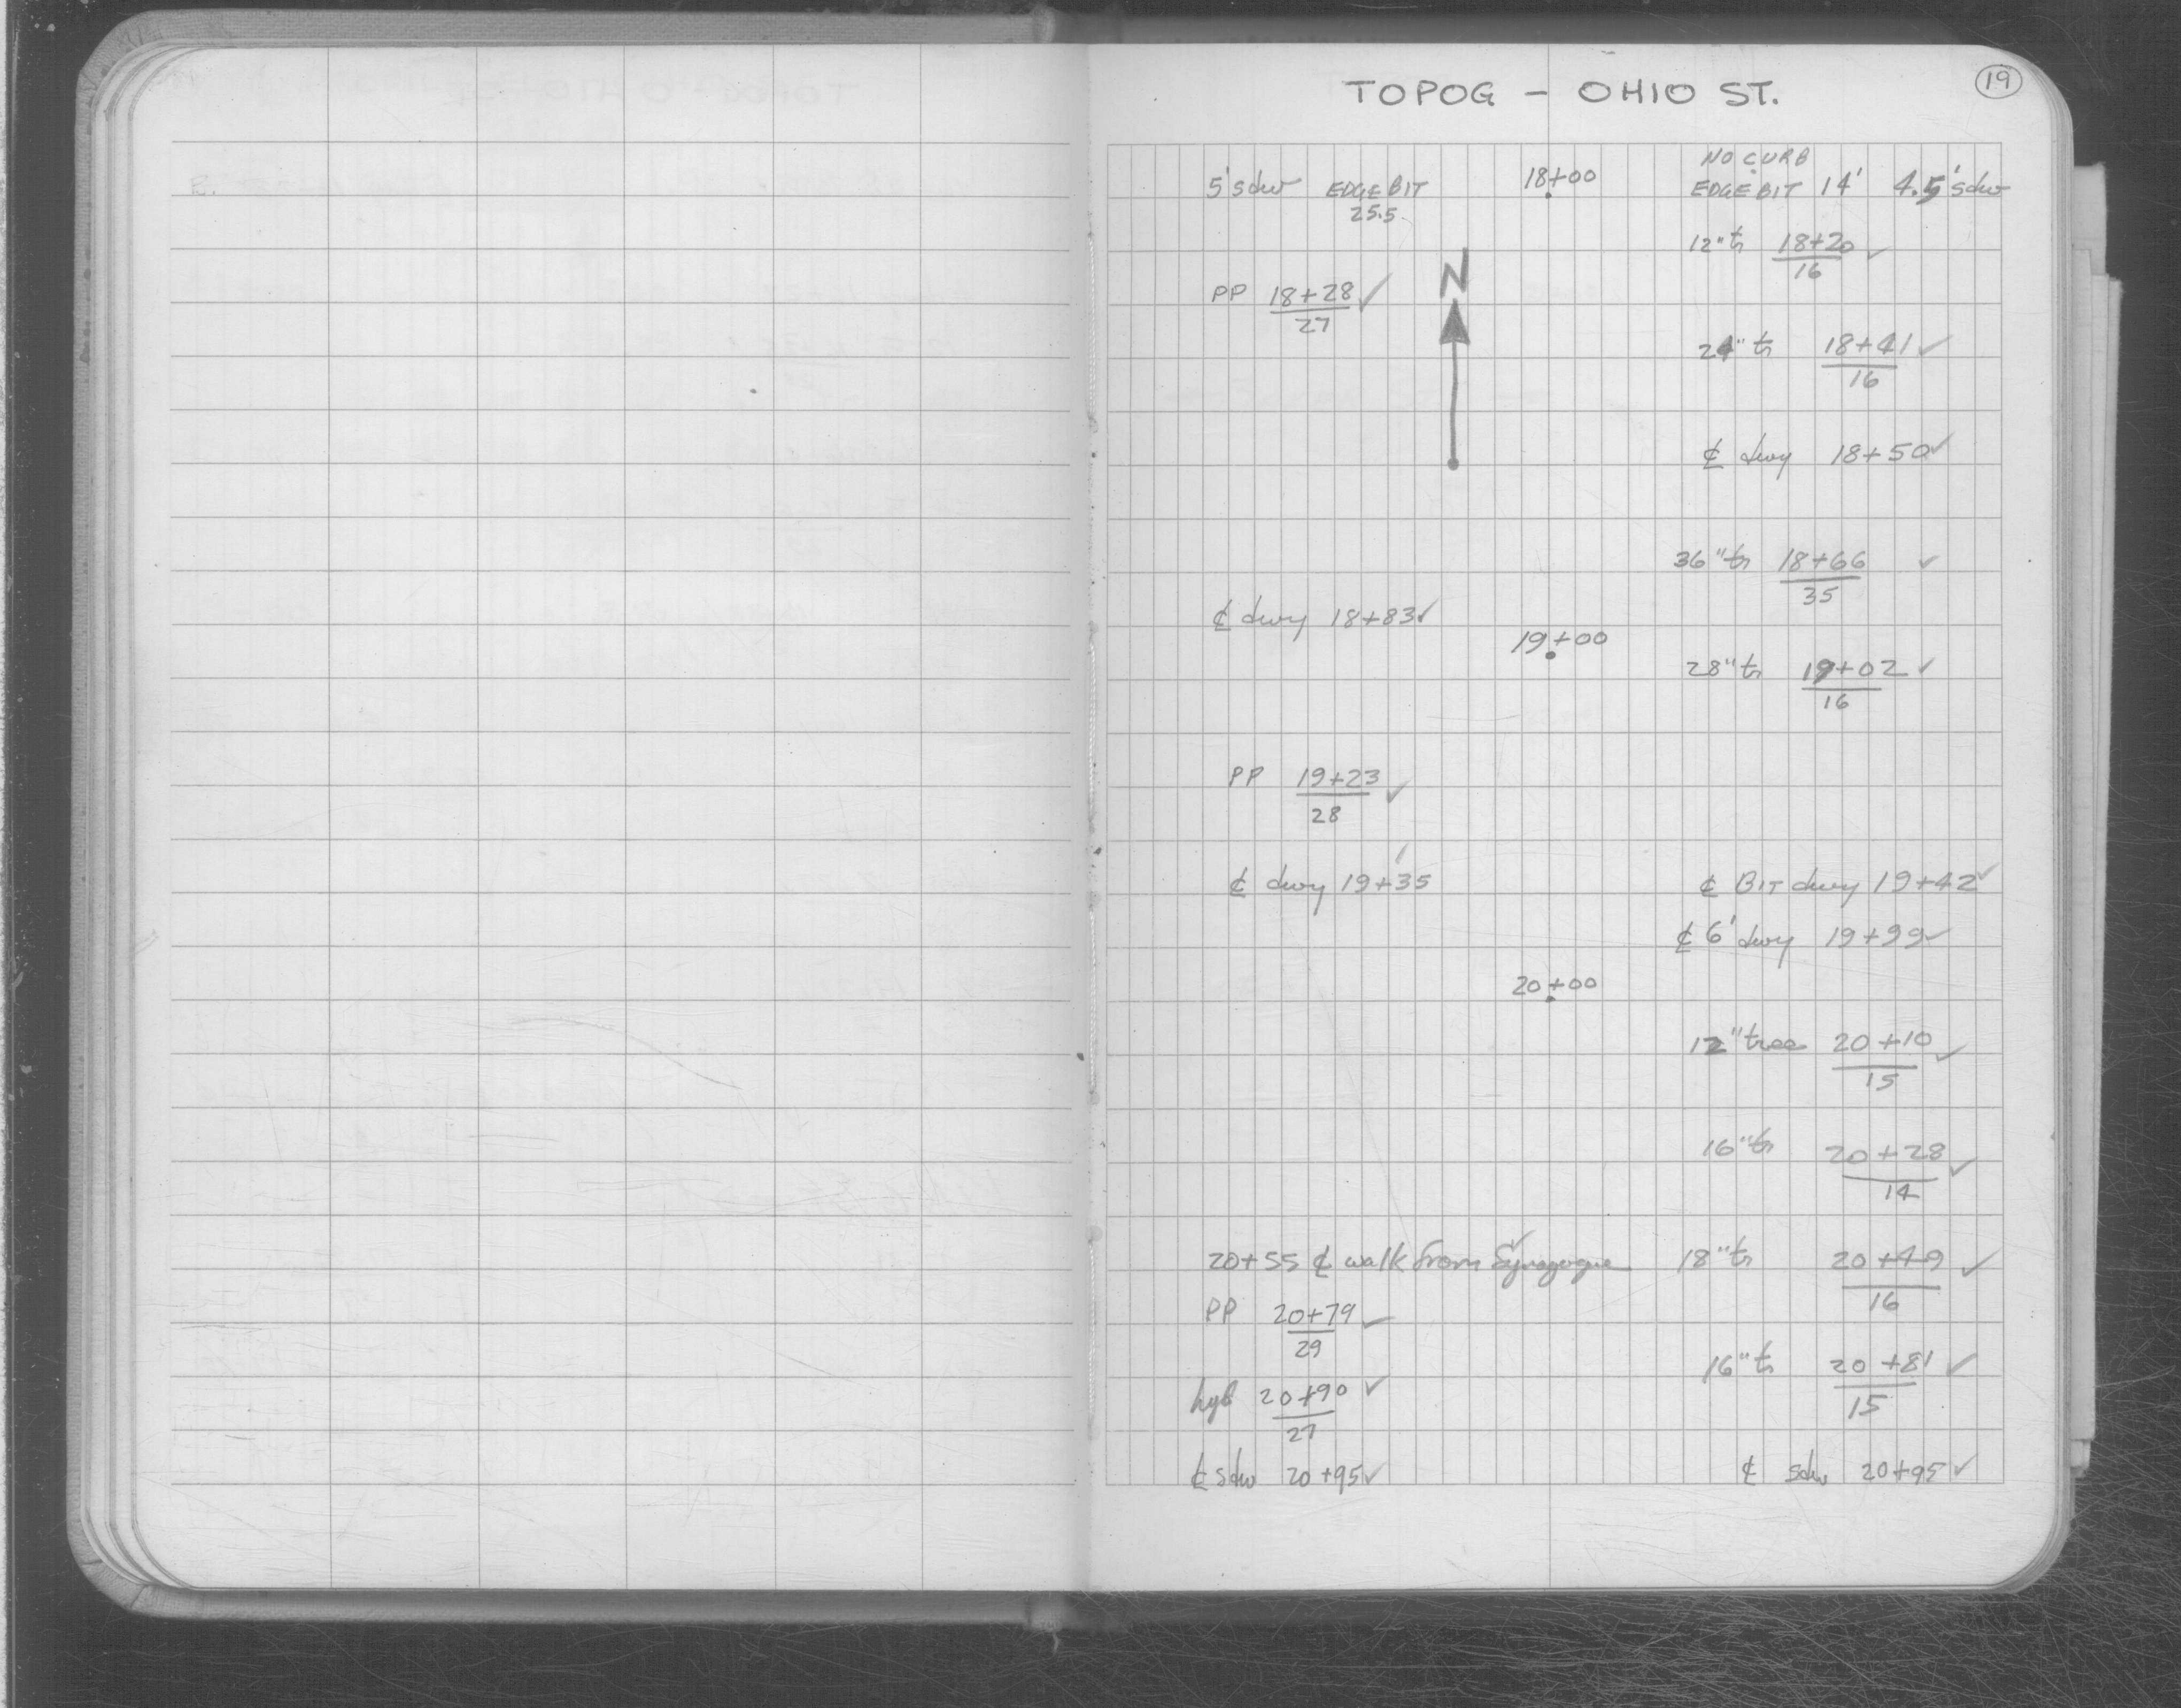 TOPOG - OHIO ST. 19
NO CURB
5' sdw EDGE BIT 18+00 EDGE BIT 14' 4.5' sdw
25.5
12" tr 18+20 ✓
16
PP 18+28 ✓ N
27
24" tr 18+41 ✓
16
℄ dwy 18+50 ✓
36" tr 18+66 ✓
35
℄ dwy 18+83 ✓
19+00
28" tr 19+02 ✓
16
PP 19+23 ✓
28
℄ dwy 19+35 ✓ ℄ BIT dwy 19+42 ✓
℄ 6' dwy 19+99 ✓
20+00
12" tree 20+10 ✓
15
16" tr 20+28 ✓
14
20+55 ℄ walk from Synagogue ✓ 18" tr 20+49 ✓
16
PP 20+79 ✓
29
16" tr 20+81 ✓
15
hyd 20+90 ✓
27
℄ sdw 20+95 ✓ ℄ sdw 20+95 ✓